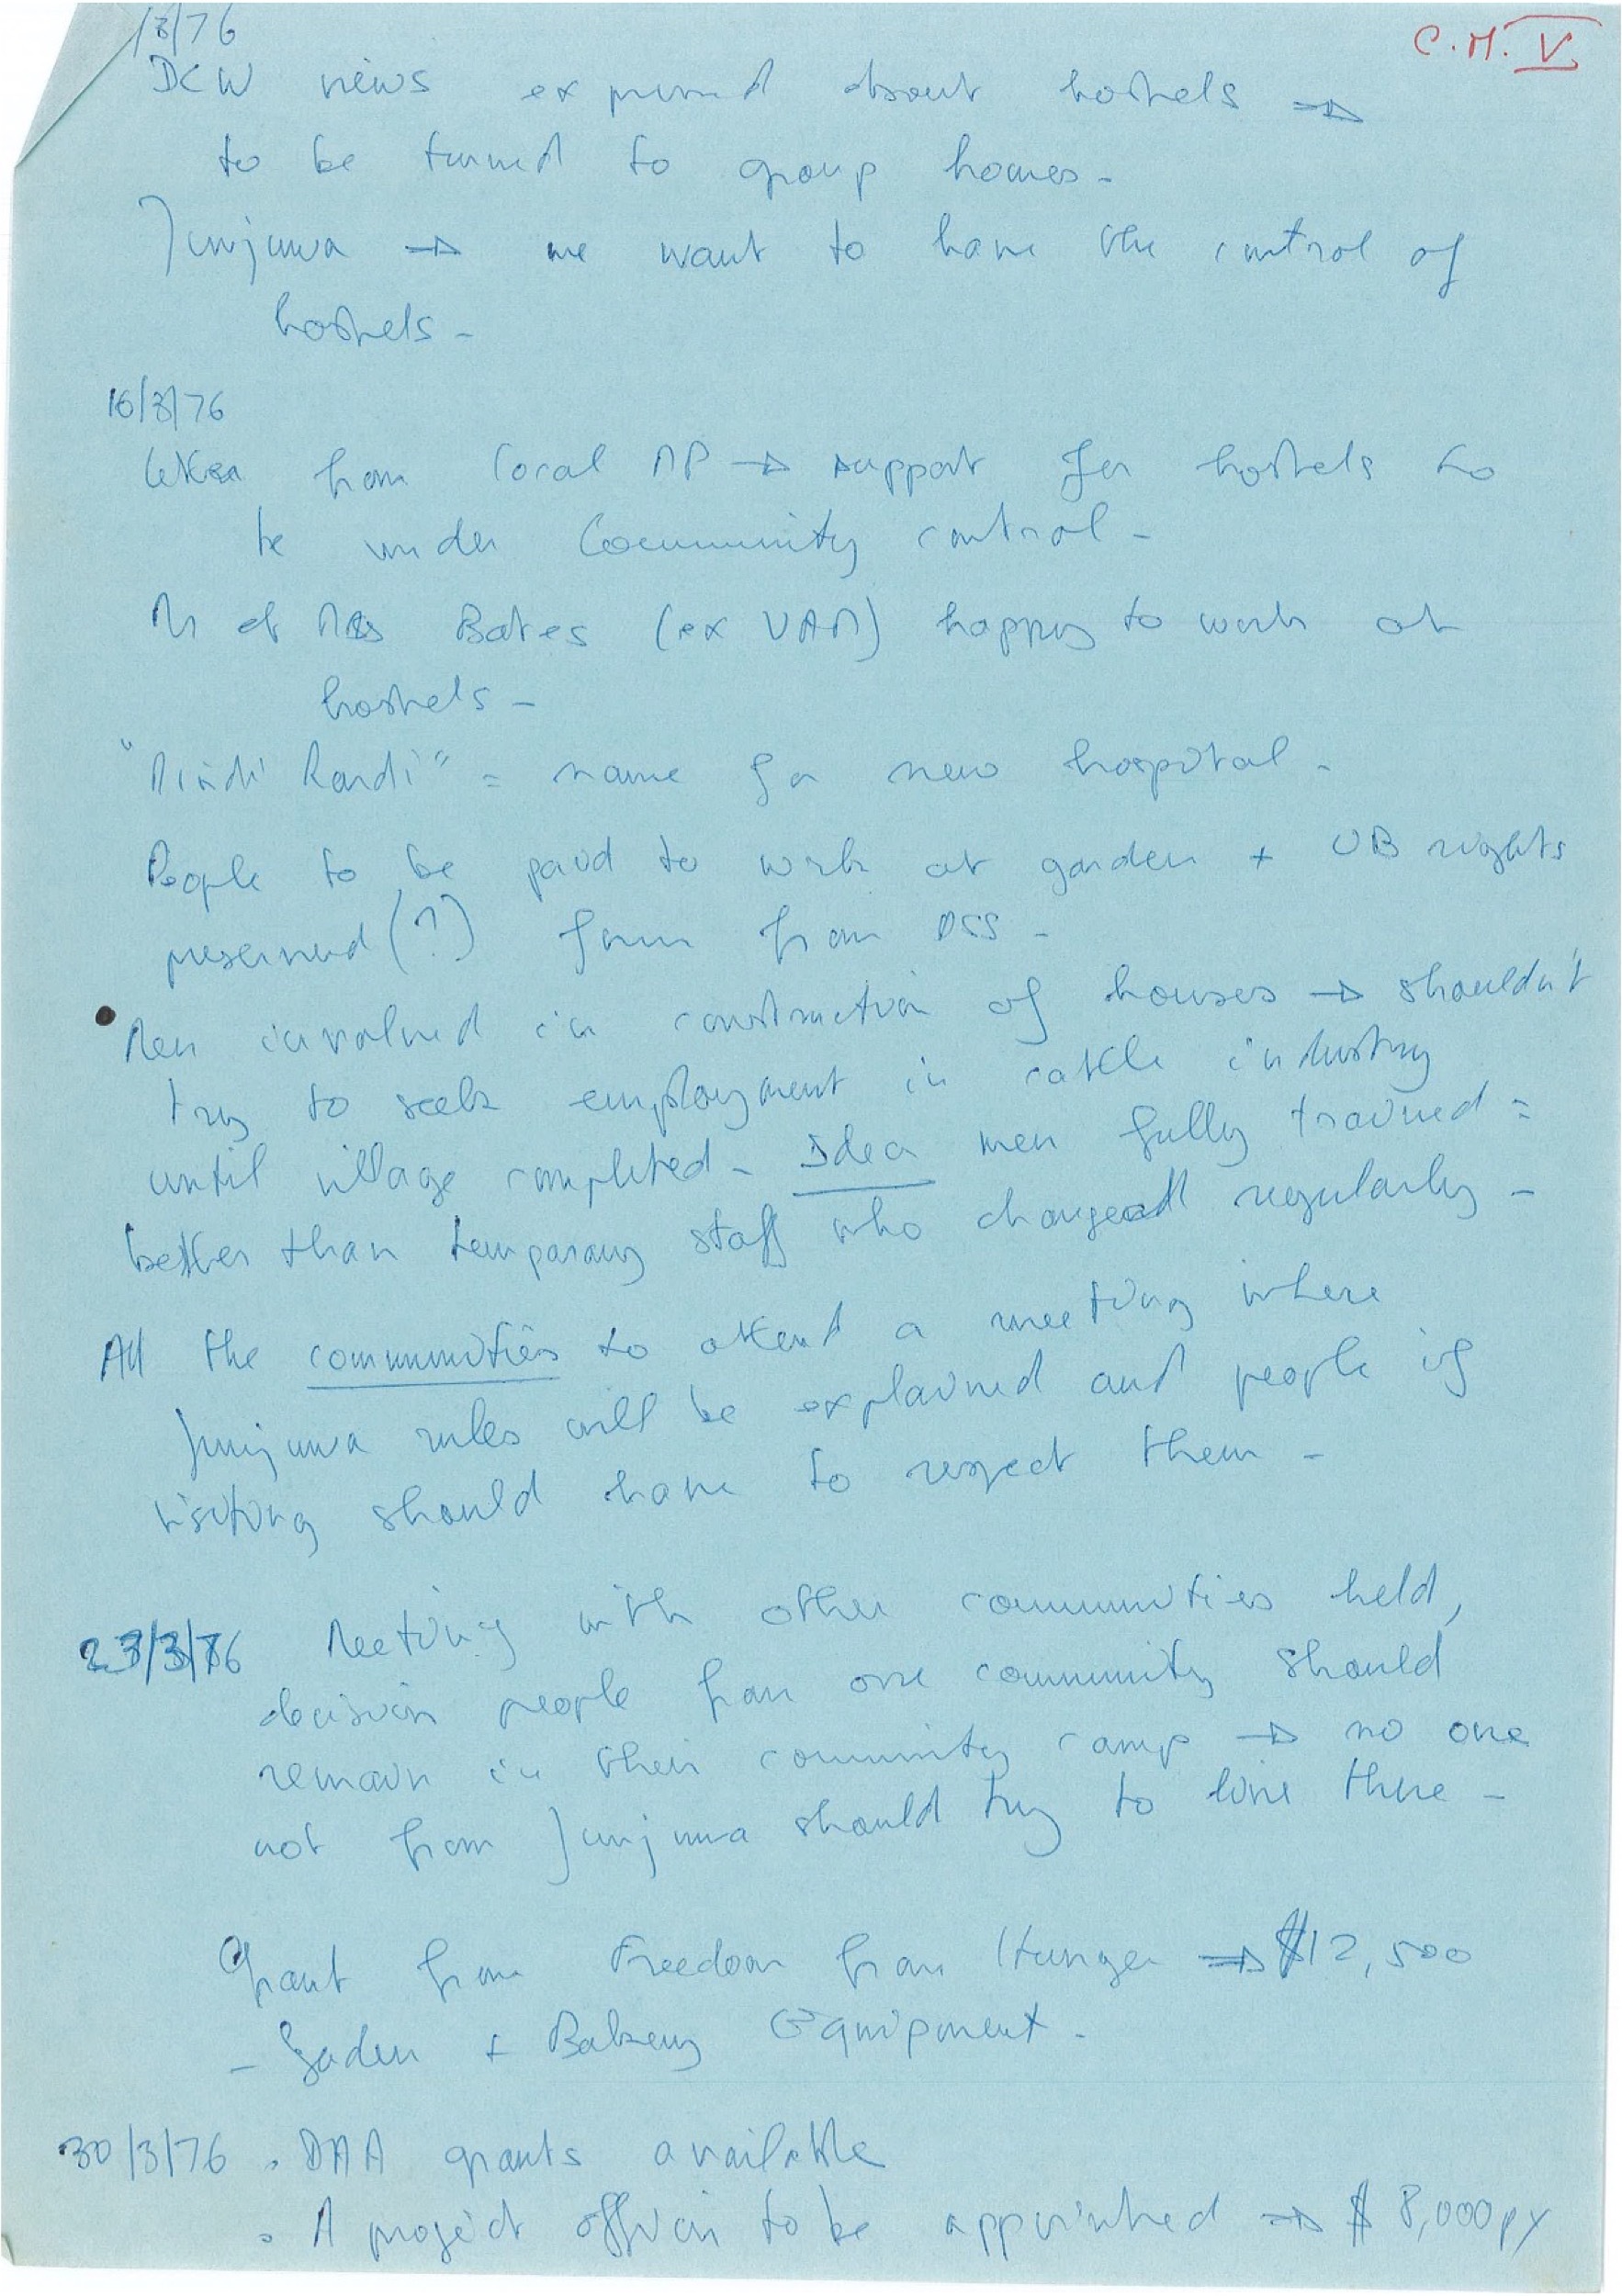 /3/76
C.M. V
DCW news expressed about hostels →
to be turned to group homes -
Junjuwa → we want to have the control of
hostels -
16/3/76
letter from local MP → support for hostels to
be under Community control -
M et Mrs Bates (ex UAM) happy to work at
hostels -
"Mindi Rardi" = name for new hospital -
People to be paid to work at garden + UB rights
preserved (?) form from DSS -
Men involved in construction of houses → shouldn't
try to seek employment in cattle industry
until village completed - Idea men fully trained =
better than temporary staff who change regularly -
All the communities to attend a meeting where
Junjuwa rules will be explained and people if
visiting should have to respect them -
23/3/76 Meeting with other communities held,
decision people from one community should
remain in their community camp → no one
not from Junjuwa should try to live there -
Grant from Freedom from Hunger → $12,500
- Gaden + Bakery Equipment -
30/3/76 . DAA grants available
. A project officer to be appointed → $ 8,000 py